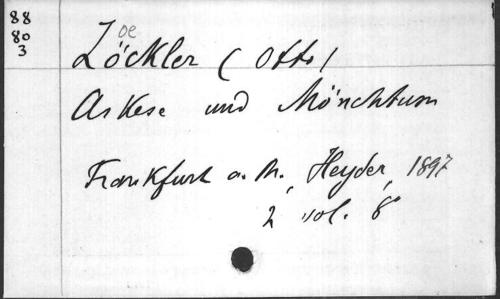 88
80
3
oe
Zöckler (Otto)
Askese und Mönchtum
Frankfurt a. M., Heyder, 1897
2 vol. 8°